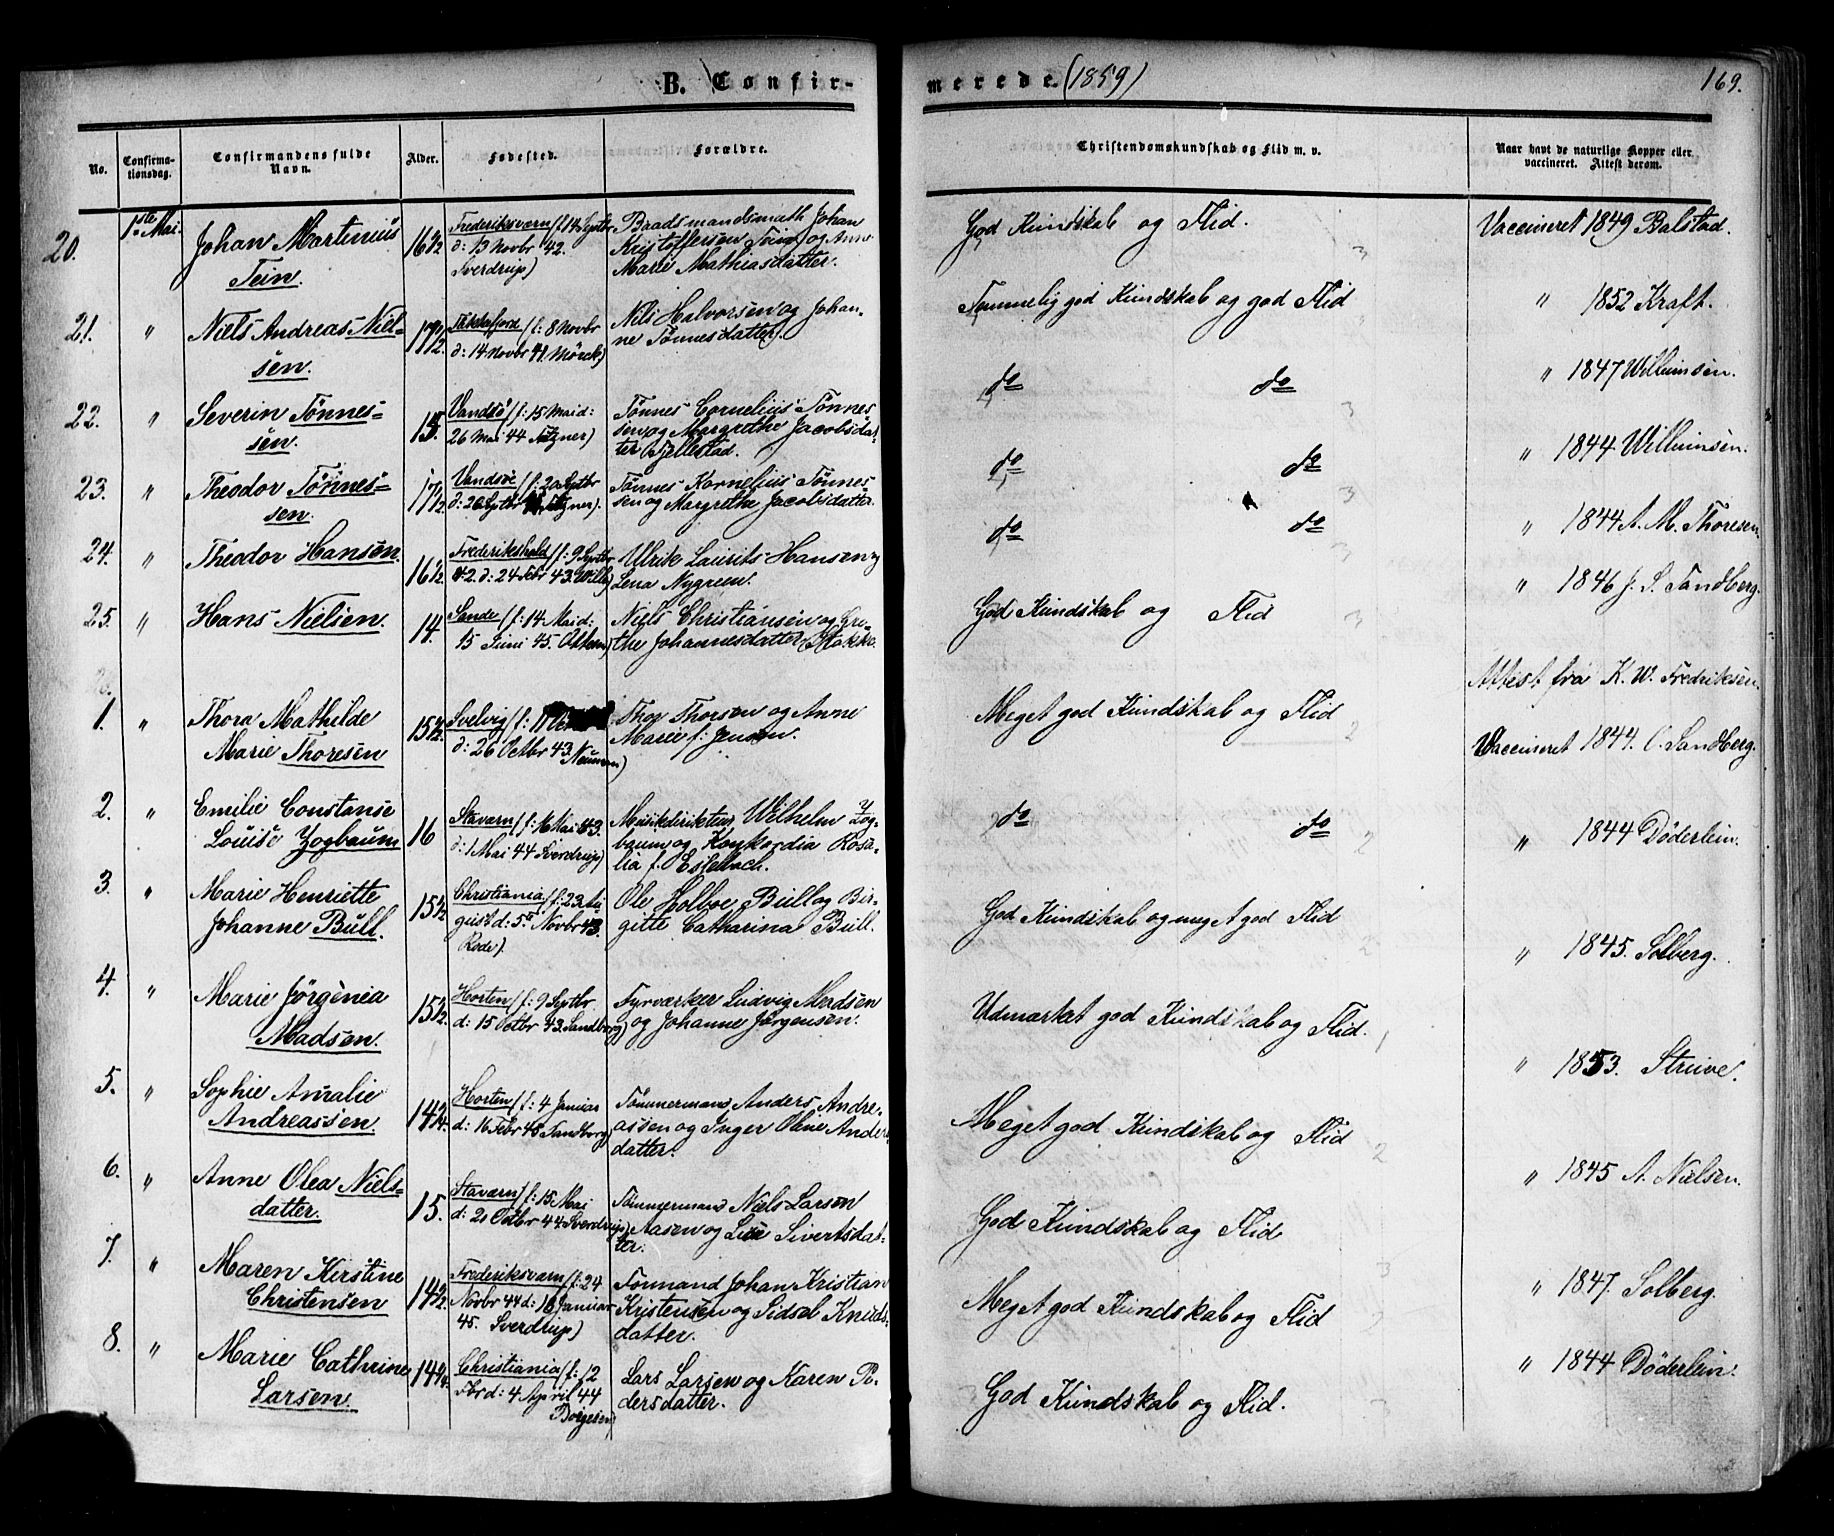 B. Confir-
merede. (1859)
169.
No.
Confirma-
tionsdag.
Confirmandens fulde
Navn.
Alder.
Fødested.
Forældre.
Christendomskundskab og Flid m. v.
Naar havt de naturlige Kopper eller
vaccineret. Attest derom.
20.
1ste Mai.
Johan Martinius
Tein.
16 1/2
Frederiksværn (f. 14 Septbr
d: 13 Novbr 42.
Sverdrup)
Baadsmandsmath Johan
Kristoffersen Tein og Anne
Marie Mathiasdatter.
God Kundskab og Flid.
Vaccineret 1849 Balstad.
21.
"
Niels Andreas Niel-
sen.
17 1/2
(f: 8 Novbr
d: 14 Novbr 41. Mörck)
Nils Halvorsen og Johan-
ne Tönnesdatter.
Temmelig god Kundskab og god Flid
" 1852 Kraft.
22.
"
Severin Tönnes-
sen.
15.
Vandsö (f: 15 Mai d:
26 Mai 44
Tönnes Cornelius Tönnes
sen og Margrethe Jacobsdat-
ter Gjellestad.
do do
" 1847 Willumsen.
23.
"
Theodor Tönnes-
sen.
17 1/2
Vandsö (f: 20 Septbr
d: 26 Septbr
Tönnes Kornelius Tönnes
sen og Margrethe Jacobsdatter.
do do
" 1844 Willumsen.
24.
"
Theodor Hansen.
16 1/2
Frederikshald (f: 9 Septbr
42. d: 24 Febr 43. Wille)
Ulrik Laurits Hansen og
Lena Nygreen.
do do
" 1844 A. M. Thoresen.
25.
"
Hans Nielsen.
14.
Sande (f: 14 Mai d:
15 Juni 45.
Niels Christiansen og Gre-
the Johannesdatter
God Kundskab og Flid
" 1846 J. S. Sandberg.
1.
"
Thora Mathilde
Marie Thoresen
15 1/2
Svelvig (f: 11
d: 26 Octbr 43. Neumann)
Thor Thorsen og Anne
Marie f: Jensen.
Meget god Kundskab og Flid
Attest fra K. W. Fredriksen.
2.
"
Emilie Constanse
Louise Zogbaum
16
Staværn (f: 16 Mai 43.
d: 1 Mai 44 Sverdrup)
Musikdirikteur Wilhelm Zog-
baum og Konkordia Rosa-
lia f.
do do
Vaccineret 1844. C. Sandberg.
3.
"
Marie Henriette
Johanne Bull.
15 1/2
Christiania (f: 23 Au
gust d: 5te Novbr 43.
Rode).
Ole Holboe Bull og Bir-
gitte Catharina Bull.
God Kundskab og meget god Flid
" 1844 Döderlein.
4.
"
Marie Jörgenia
Madsen.
15 1/2
Horten (f: 9 Septbr
d: 15 Octbr 43. Sandberg)
Fyrværker Ludvig Madsen
og Johanne Jörgensen.
Udmærket god Kundskab og Flid.
" 1845. Solberg.
5.
"
Sophie Amalie
Andreassen.
14 1/4
Horten (f: 4 Januar
d: 16 Febr 45 Sandberg)
Tömmermand Anders Andre-
assen og Inger Oline Anders
datter.
Meget god Kundskab og Flid
" 1853. Struve.
6.
"
Anne Olea Niels-
datter.
15.
Staværn (f: 15 Mai
d: 20 Octbr 44 Sverdrup)
Tömmermand Niels Larsen
Aasen og Lise Sivertsdat-
ter.
God Kundskab og Flid
" 1845 A. Nielsen.
7.
"
Maren Kirstine
Christensen
14 1/2
Frederiksværn (f: 24
Novbr 44 d: 16 Januar
45. Sverdrup)
Formand Johan Kristian
Kristensen og Sidsel Knuds-
datter.
Meget god Kundskab og Flid
" 1847. Solberg.
8.
"
Marie Cathrine
Larsen.
14 1/4
Christiania (f: 12
Fbr d: 4 April 44
Borgesen)
Lars Larsen og Karen Pe-
dersdatter.
God Kundskab og Flid.
" 1844 Döderlein.